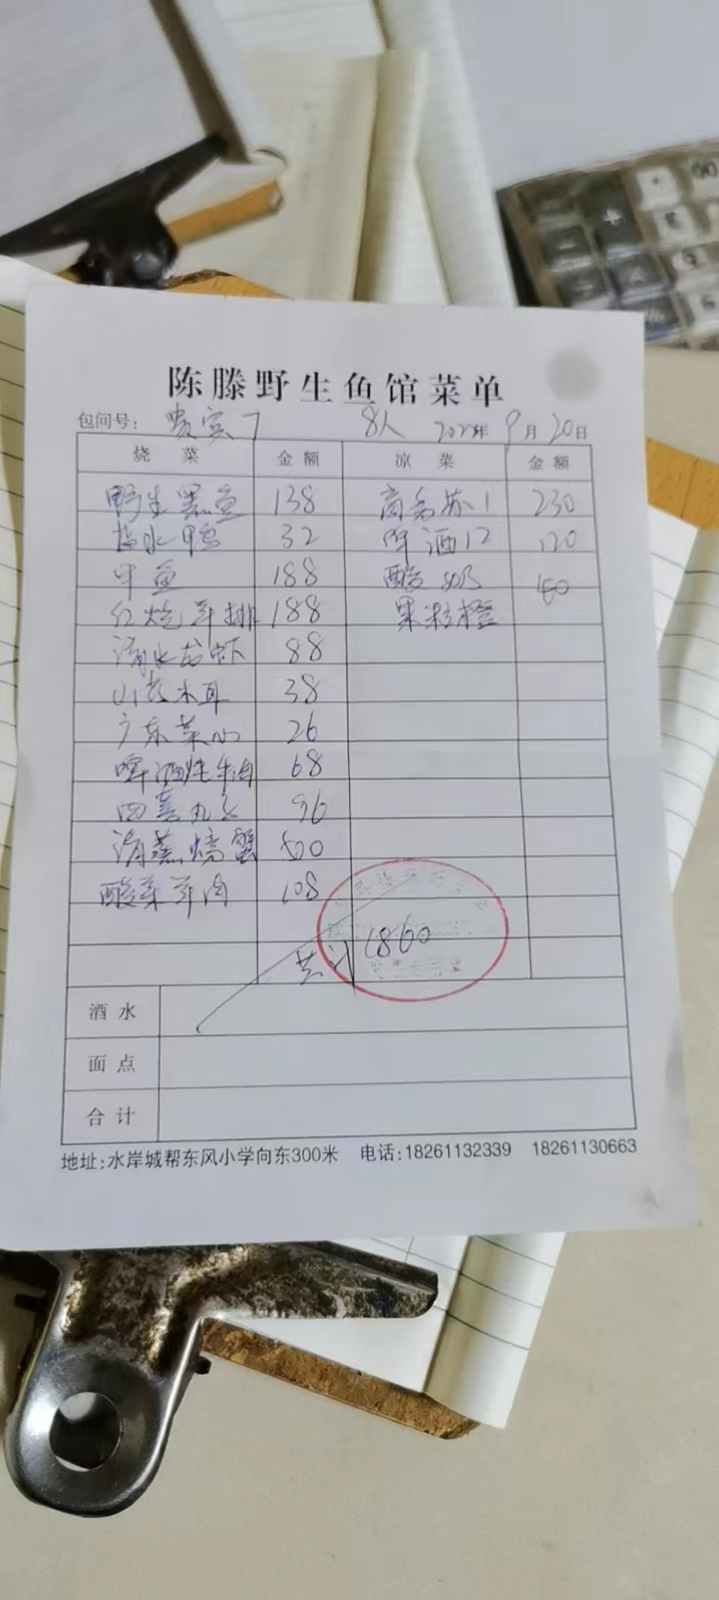 陈滕野生鱼馆菜单
包间号: 贵宾7 8人 年9月20日
烧菜 金额 凉菜 金额
野生黑鱼 138 商务苏1 230
盐水鸭 32 啤酒12 120
甲鱼 188 酸奶
红烧羊排 188 果粒橙
清水龙虾 88
山药木耳 38
广东菜心 26
啤酒炖牛肉 68
四喜丸子 96
清蒸螃蟹 500
酸菜羊肉 108
共计 1860
酒水
面点
合计
地址:水岸城帮东风小学向东300米 电话:18261132339 18261130663